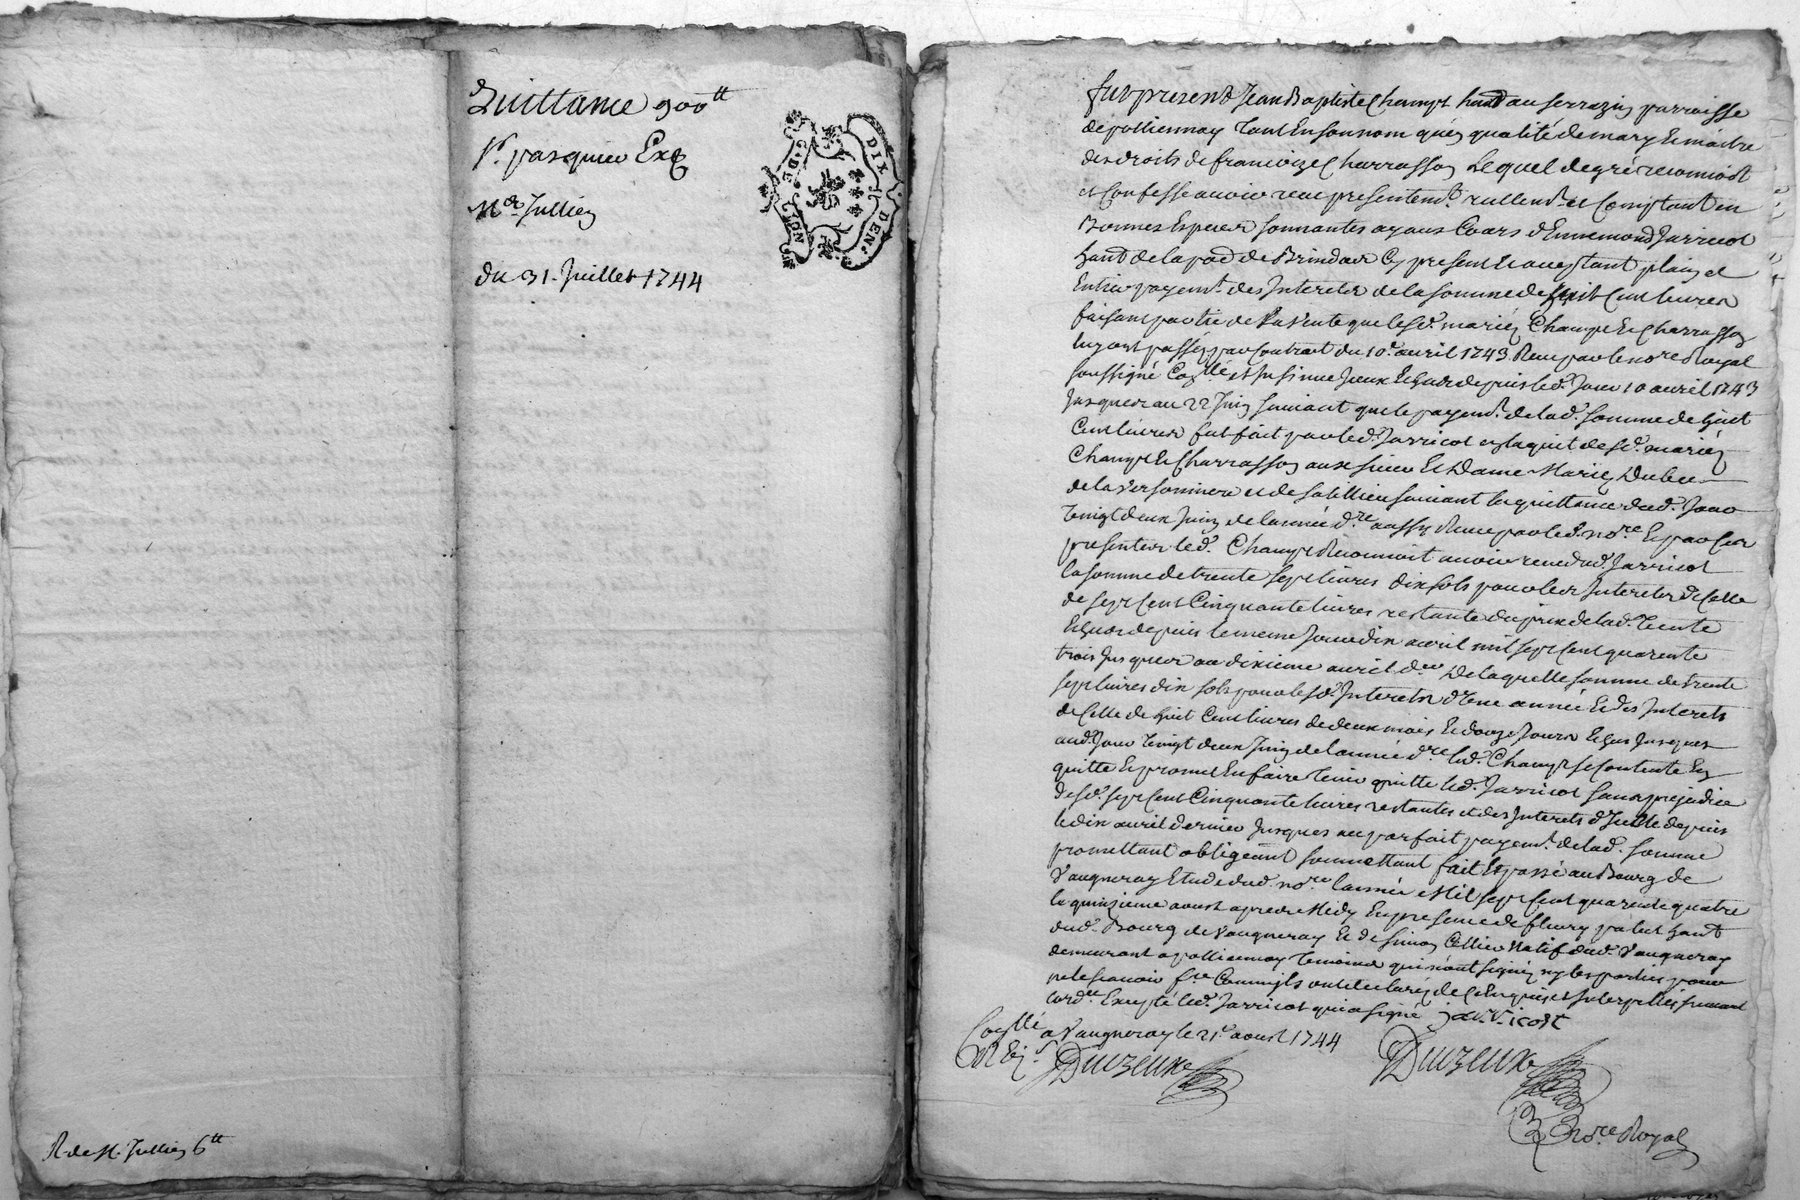 Quittance 900tt
Sr. pasquier Exg
Mr. Jullien
du 31. Juillet 1744
G. DE LYON
DIX DEN.
R. de M. Jullien 6tt
fut present Jean Baptiste Champt habt au serrazin parroisse
de polliennay tant En son nom qu'en qualité de mary Et maitre
des droits de francoize Charrasson Lequel de gré reconnoit
et Confesse avoir reçu presentemt. reellemt. et Comptant en
Bonnes Especes sonnantes ayans Cours d'Ennemond Jarricot
habt de la par. de Brindas Cy present Et acceptant plain et
Entier payemt. des Interets de la somme de huit Cent livres
faisant partie de la Vente que lesd. mariez Champt Et Charrasson
luy ont passé par Contract du 10e. avril 1743. Reçu par le nore Royal
soussigné Collé et Insinué Iceux Echus depuis led. Jour 10 avril 1743
Jusques au 22 Juin suivant que le payemt. de lad. somme de huit
Cent livres fut fait par led. Jarricot en l'acquit desd. mariez
Champt Et Charrasson aux sieur Et Dame Mariez Dubec
de la et de suivant la quittance dud. Jour
Vingt deux Juin de l'année dre. aussy Reçue par led. nore. Et par Ces
presentes led. Champt Reconnoit avoir reçu dud. Jarricot
la somme de trente sept livres dix sols pour les Interets de Celle
de sept Cent Cinquante livres restante du prix de lad. Vente
Echus depuis le meme Jour dix avril mil sept Cent quarente
trois Jusques au dixieme avril der. De laquelle somme de trente
sept livres dix sols pour lesd. Interets d'Une année Et des Interets
de Celle de huit Cent livres de deux mois Et douze Jours Echus Jusques
aud. Jour Vingt deux Juin de l'année dre. led. Champt se Contente En
quitte Et promet En faire tenir quitte led. Jarricot sans prejudice
desd. sept Cent Cinquante livres restantes et des Interets d'Icelle depuis
le dix avril dernier Jusques au parfait payemt. de lad. somme
promettant obligeant soumettant fait Et passé au Bourg de
Vaugneray Etude dud. nore. l'année Mil sept Cent quarente quatre
le quinzieme aoust apres Midy En presence de fleury habt
dud. Bourg de Vaugneray Et de Simon Cellier Natif dud. Vaugneray
demeurant a polliennay temoins qui n'ont signé ny les parties pour
ne le scavoir fre. Comm'ils ont declaré de Ce Enquis et Interpellés suivant
l'orde. Excepté led. Jarricot qui a signé
Collé a Vaugneray le 21e. aoust 1744
Duvzeuxe
Duvzeuxe
nore Royal